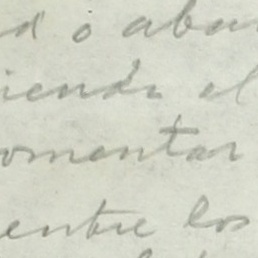 d o abu
iendo el
omentar
entre los